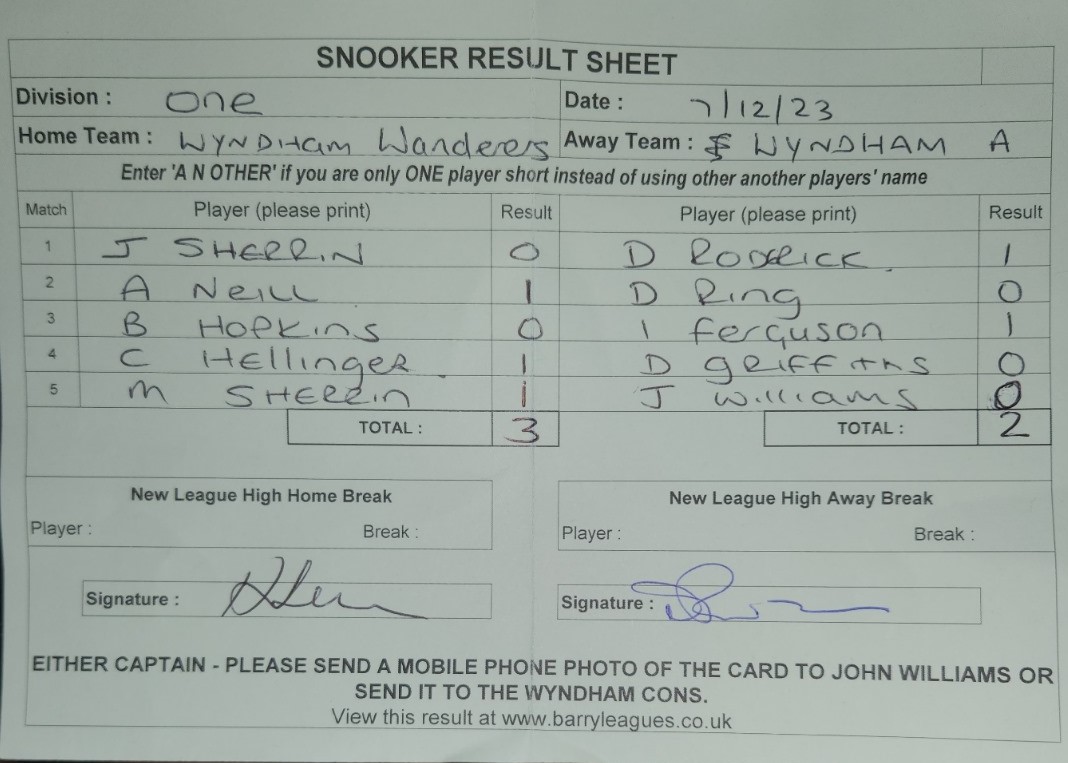 SNOOKER RESULT SHEET
Division : One Date : 7/12/23
Home Team : WYNDHAM Wanderers Away Team : WYNDHAM A
Enter 'A N OTHER' if you are only ONE player short instead of using other another players' name
Match Player (please print) Result Player (please print) Result
1 J SHERRIN 0 D RODERICK 1
2 A NEILL 1 D Ring 0
3 B HOPKINS 0 I Ferguson 1
4 C Hellinger 1 D GRIFFITHS 0
5 M SHERRIN 1 J Williams 0
TOTAL : 3 TOTAL : 2
New League High Home Break New League High Away Break
Player : Break : Player : Break :
Signature : Signature :
EITHER CAPTAIN - PLEASE SEND A MOBILE PHONE PHOTO OF THE CARD TO JOHN WILLIAMS OR
SEND IT TO THE WYNDHAM CONS.
View this result at www.barryleagues.co.uk